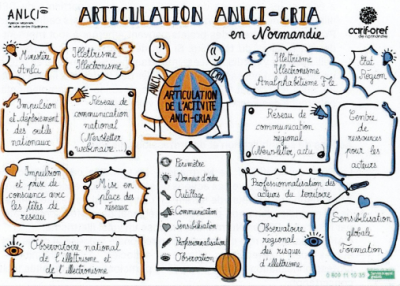 ANLCI
ARTICULATION ANLCI-CRIA
en Normandie
carif-oref
de normandie
Ministère
Anlci
Illettrisme
Illectronisme
ANLCI
CRIA
Illettrisme
Illectronisme
Analphabétisme Fle
Etat
Région
ARTICULATION
DE L'ACTIVITÉ
ANLCI-CRIA
Impulsion
et déploiement
des outils
nationaux
Réseau de
communication
national
(Newsletter,
webinaire...)
Réseau de
communication
régional
(Newsletter, actu...)
Centre
de
ressources
pour les
acteurs
Impulsion
et prise de
conscience avec
les têtes de
réseau
Mise en
place des
réseaux
Périmètre
Donneur d'ordre
Outillage
Communication
Sensibilisation
Professionnalisation
Observation
Professionnalisation des
acteurs du territoire
Sensibilisation
globale
Formation
Observatoire national
de l'illettrisme et
de l'illectronisme
Observatoire
régional
des risques
d'illettrisme